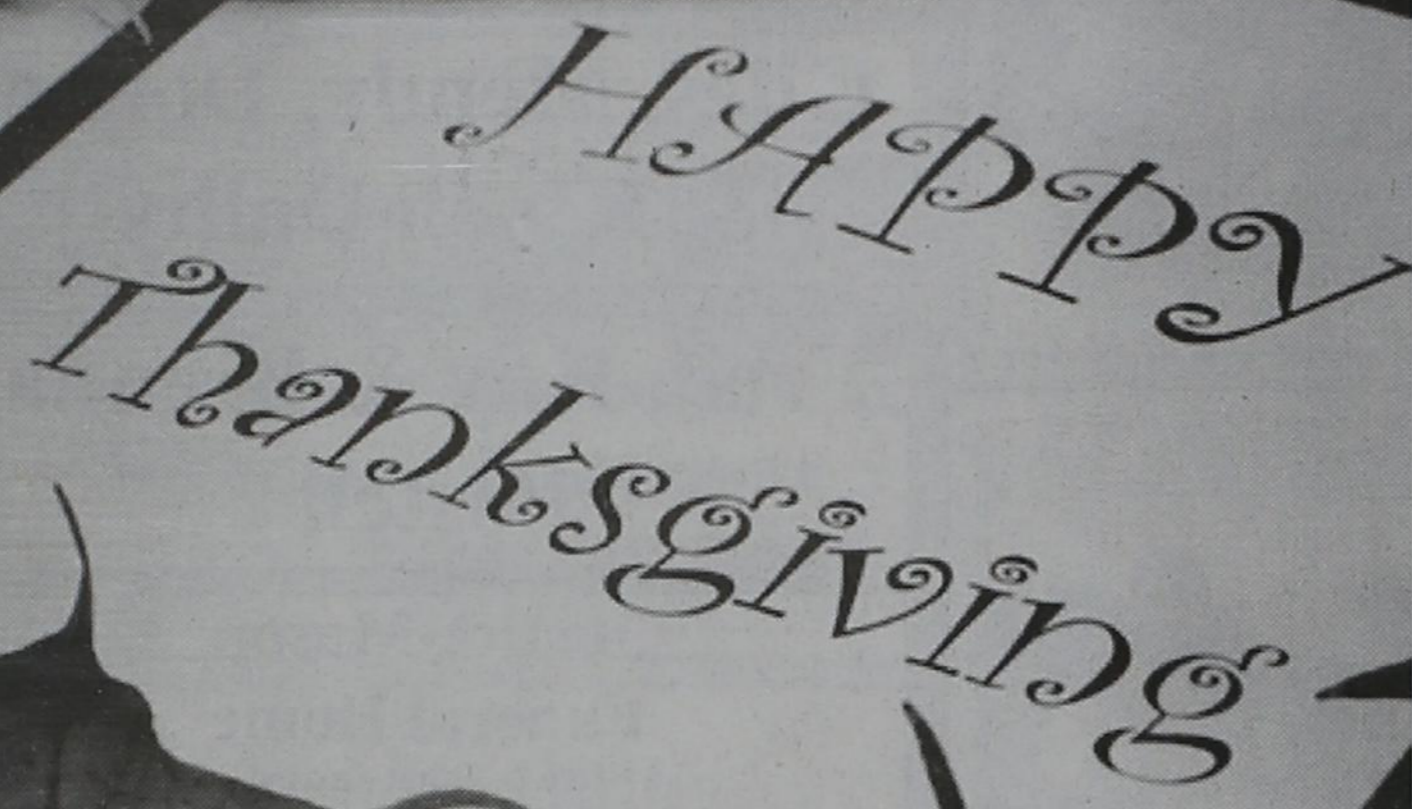 HAPPY
Thanksgiving